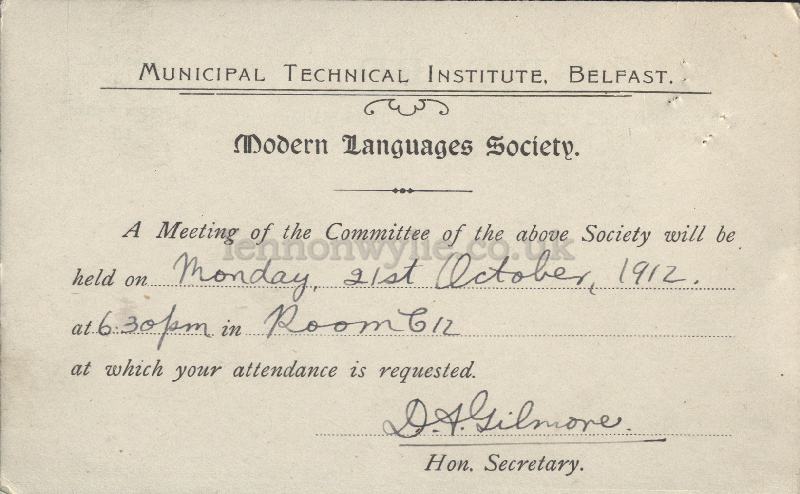 Municipal Technical Institute, Belfast.
Modern Languages Society.
A Meeting of the Committee of the above Society will be
lennonwylie.co.uk
held on Monday, 21st October, 1912.
at 6.30pm in Room C12
at which your attendance is requested.
D.A. Gilmore.
Hon. Secretary.